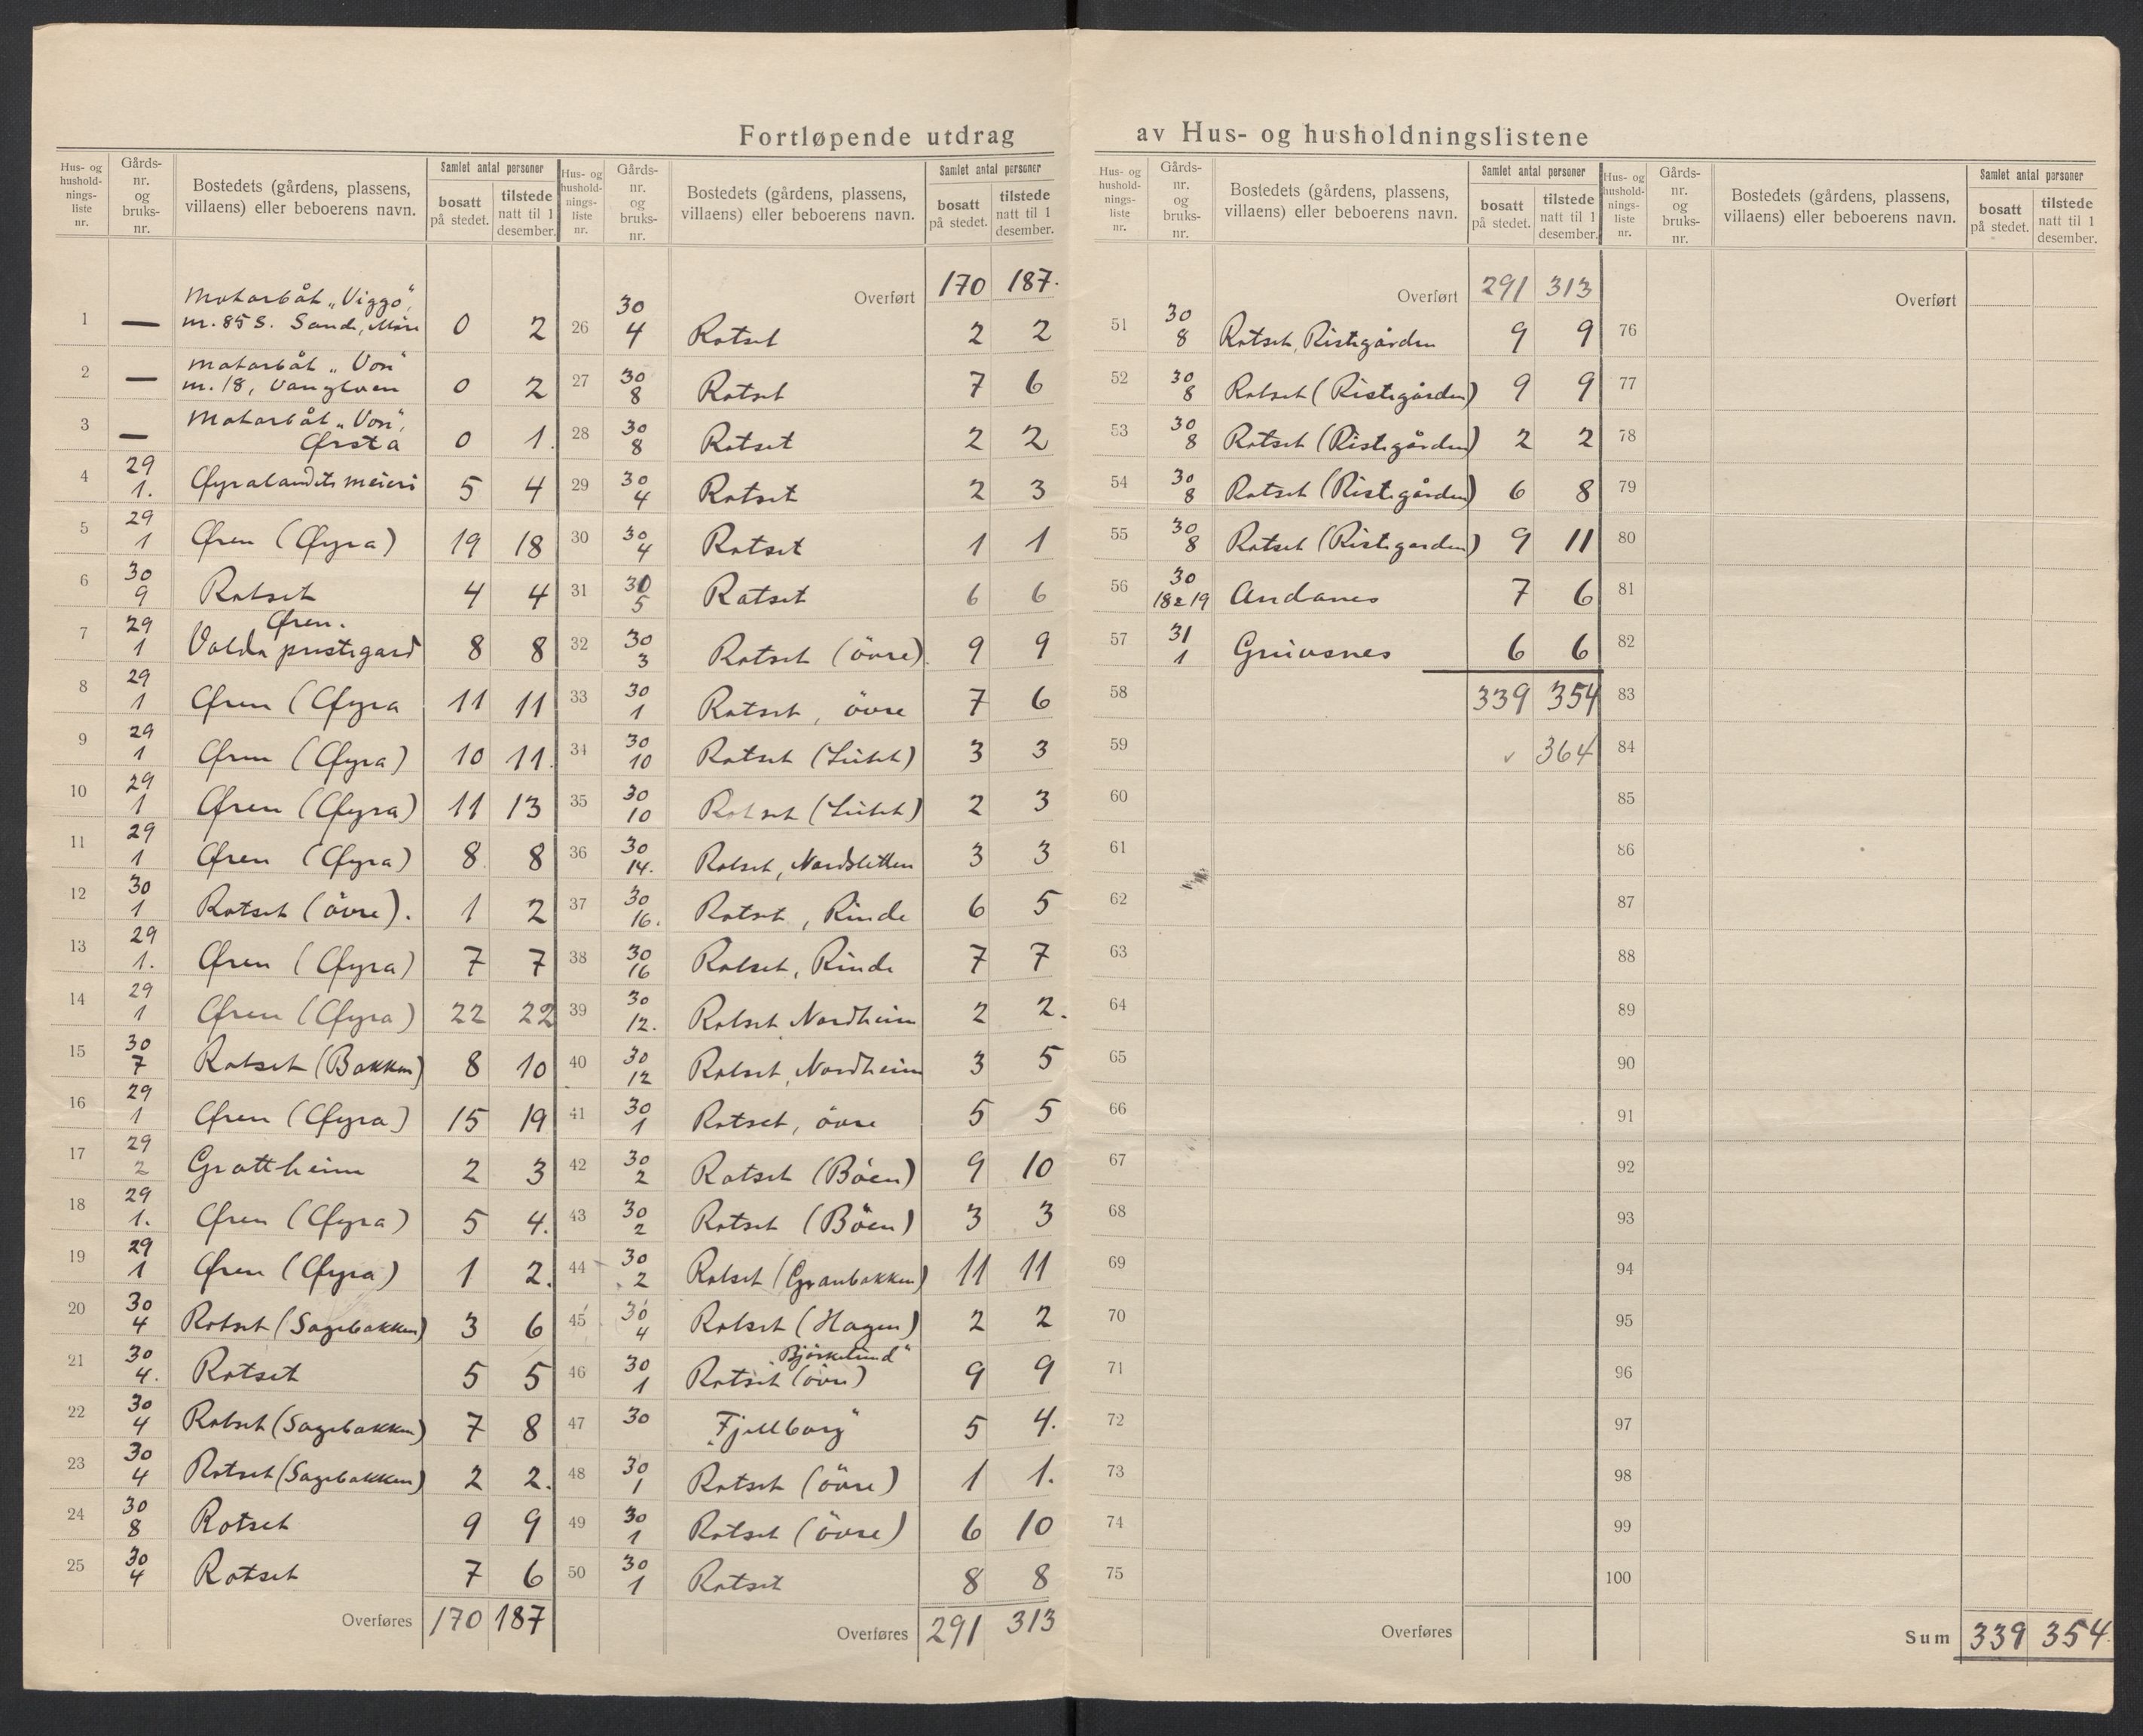 Fortløpende utdrag av Hus- og husholdningslistene
Hus- og husholdningsliste nr. | Gårdsnr. og bruksnr. | Bostedets (gårdens, plassens, villaens) eller beboerens navn. | Samlet antal personer bosatt på stedet. | tilstede natt til 1 desember.
1 — Motorbåt „Viggo", m. 85 S. Sande, Møre 0 2
2 — Motorbåt „Von" m. 18, Vanylven 0 2
3 — Motorbåt „Von", Ørsta 0 1.
4 29 1. Øyralandets meieri 5 4
5 29 1 Øren (Øyra) 19 18
6 30 9 Rotset 4 4
7 29 1 Øren. Volda prestegard 8 8
8 29 1 Øren (Øyra 11 11
9 29 1 Øren (Øyra) 10 11.
10 29 1 Øren (Øyra) 11 13
11 29 1 Øren (Øyra) 8 8
12 30 1 Rotset (övre). 1 2
13 29 1. Øren (Øyra) 7 7
14 29 1 Øren (Øyra) 22 22
15 30 7 Rotset (Bakken) 8 10
16 29 1 Øren (Øyra) 15 19
17 29 2 Grottheim 2 3
18 29 1. Øren (Øyra) 5 4.
19 29 1 Øren (Øyra) 1 2.
20 30 4 Rotset (Sagebakken) 3 6
21 30 4. Rotset 5 5
22 30 4 Rotset (Sagebakken) 7 8
23 30 4 Rotset (Sagebakken) 2 2.
24 30 8 Rotset 9 9
25 30 4 Rotset 7 6
Overføres 170 187
Hus- og husholdningsliste nr. | Gårdsnr. og bruksnr. | Bostedets (gårdens, plassens, villaens) eller beboerens navn. | Samlet antal personer bosatt på stedet. | tilstede natt til 1 desember.
Overført 170 187.
26 30 4 Rotset 2 2
27 30 8 Rotset 7 6
28 30 8 Rotset 2 2
29 30 4 Rotset 2 3
30 30 4 Rotset 1 1
31 30 5 Rotset 6 6
32 30 3 Rotset (övre). 9 9
33 30 1 Rotset, övre 7 6
34 30 10 Rotset 3 3
35 30 10 Rotset 2 3
36 30 14. Rotset, Nordsletten 3 3
37 30 16. Rotset, Rinde 6 5
38 30 16 Rotset, Rinde 7 7
39 30 12. Rotset Nordheim 2 2.
40 30 12 Rotset, Nordheim 3 5
41 30 1 Rotset, övre 5 5
42 30 2 Rotset (Böen) 9 10
43 30 2 Rotset (Böen) 3 3
44 30 2 Rotset (Granbakken) 11 11
45 30 4 Rotset (Hagen) 2 2
46 30 1 Rotset (övre) „Björkelund" 9 9
47 30 „Fjellborg" 5 4.
48 30 1 Rotset (övre) 1 1.
49 30 1 Rotset (övre) 6 10
50 30 1 Rotset 8 8
Overføres 291 313
Hus- og husholdningsliste nr. | Gårdsnr. og bruksnr. | Bostedets (gårdens, plassens, villaens) eller beboerens navn. | Samlet antal personer bosatt på stedet. | tilstede natt til 1 desember.
Overført 291 313
51 30 8 Rotset, Ristegården 9 9
52 30 8 Rotset (Ristegården) 9 9
53 30 8 Rotset (Ristegården) 2 2
54 30 8 Rotset (Ristegården) 6 8
55 30 8 Rotset (Ristegarden) 9 11
56 30 18 & 19 Andanes 7 6
57 31 1 Greivsnes 6 6
58 339 354
59 ✓ 364
60
61
62
63
64
65
66
67
68
69
70
71
72
73
74
75
Overføres
Hus- og husholdningsliste nr. | Gårdsnr. og bruksnr. | Bostedets (gårdens, plassens, villaens) eller beboerens navn. | Samlet antal personer bosatt på stedet. | tilstede natt til 1 desember.
Overført
76
77
78
79
80
81
82
83
84
85
86
87
88
89
90
91
92
93
94
95
96
97
98
99
100
Sum 339 354.